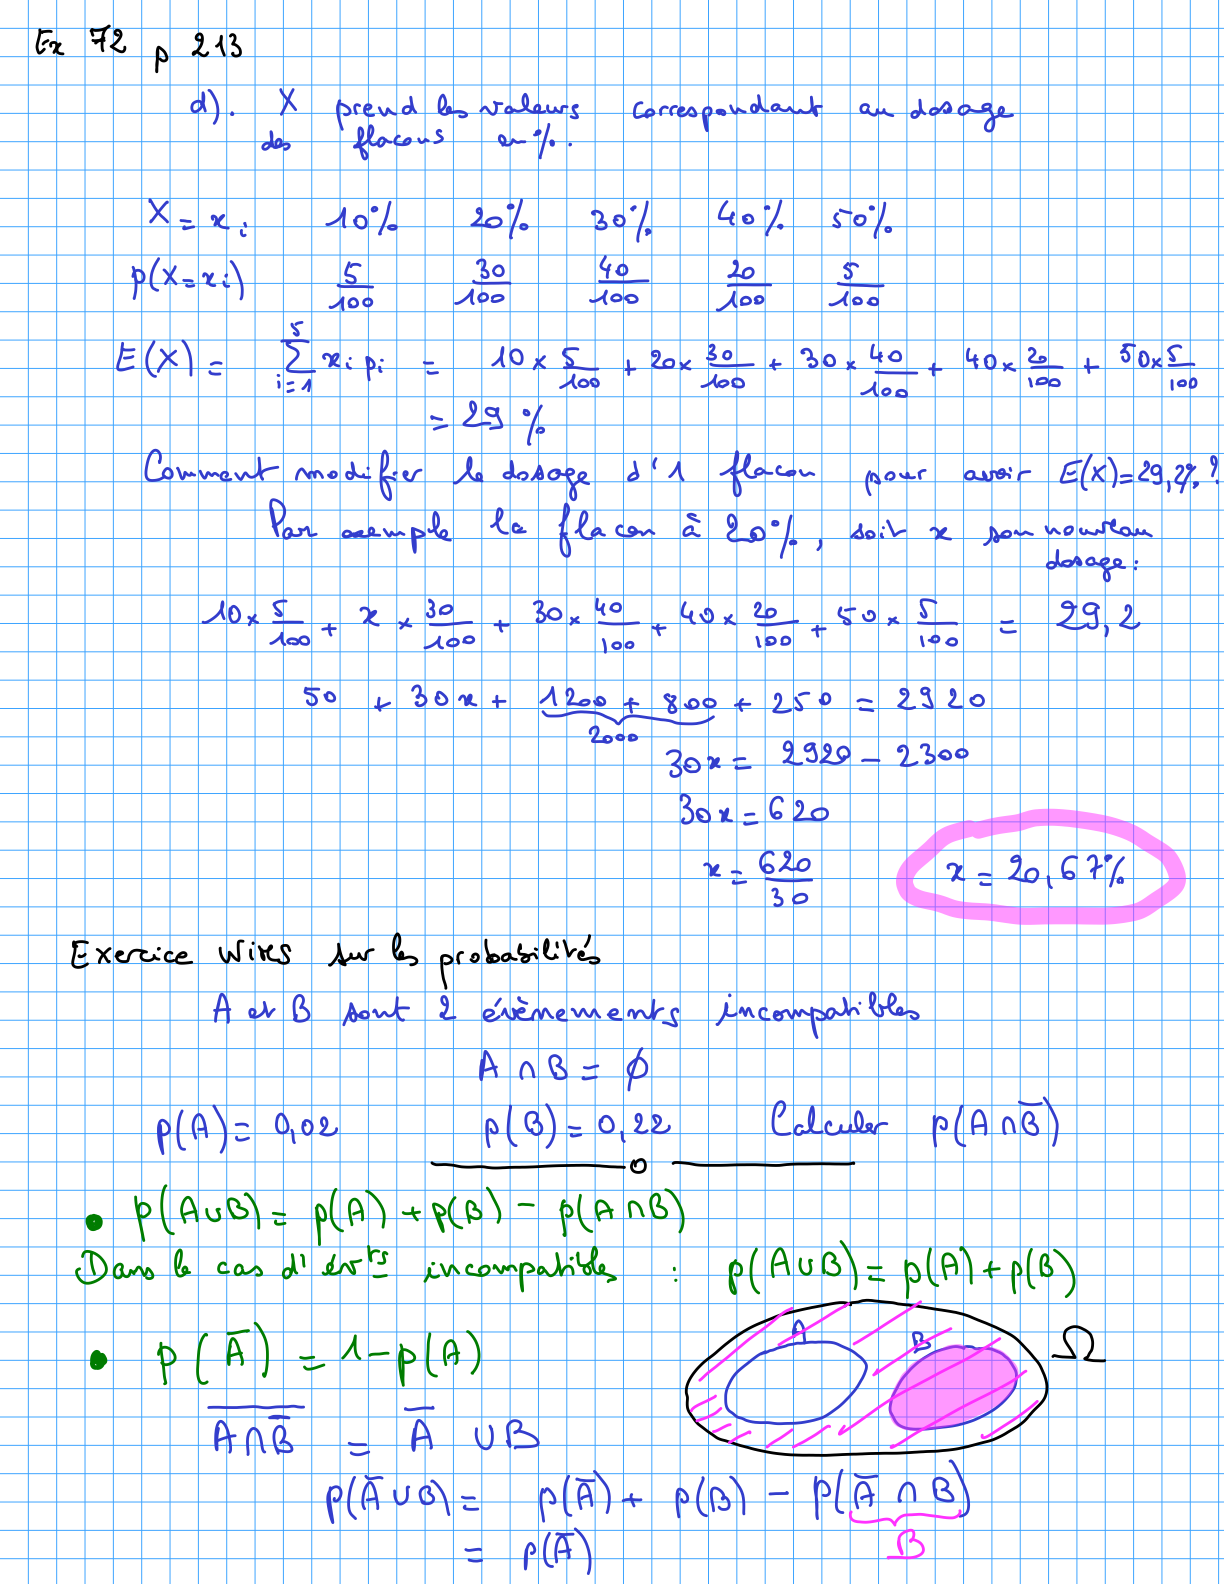 Ex 72 p 213
d). X prend les valeurs correspondant au dosage
des flacons en %.
X = xᵢ 10% 20% 30% 40% 50%
p(X = xᵢ) 5/100 30/100 40/100 20/100 5/100
E(X) = ∑_{i=1}^{5} xᵢ pᵢ = 10 × 5/100 + 20 × 30/100 + 30 × 40/100 + 40 × 20/100 + 50 × 5/100
= 29 %
Comment modifier le dosage d'1 flacon pour avoir E(X) = 29,2% ?
Par exemple le flacon à 20%, soit x son nouveau
dosage :
10 × 5/100 + x × 30/100 + 30 × 40/100 + 40 × 20/100 + 50 × 5/100 = 29,2
50 + 30x + 1200 + 800 + 250 = 2920
2000
30x = 2920 - 2300
30x = 620
x = 620/30 x = 20,67%
Exercice Wims sur les probabilités
A et B sont 2 évènements incompatibles
A ∩ B = ∅
p(A) = 0,02 p(B) = 0,22 Calculer p(A ∩ B̅)
• p(A∪B) = p(A) + p(B) - p(A ∩ B)
Dans le cas d'évts incompatibles : p(A∪B) = p(A) + p(B)
A B Ω
• p(A̅) = 1 - p(A)
\overline{A ∩ B̅} = A̅ ∪ B
p(A̅ ∪ B) = p(A̅) + p(B) - p(A̅ ∩ B)
B
= p(A̅)